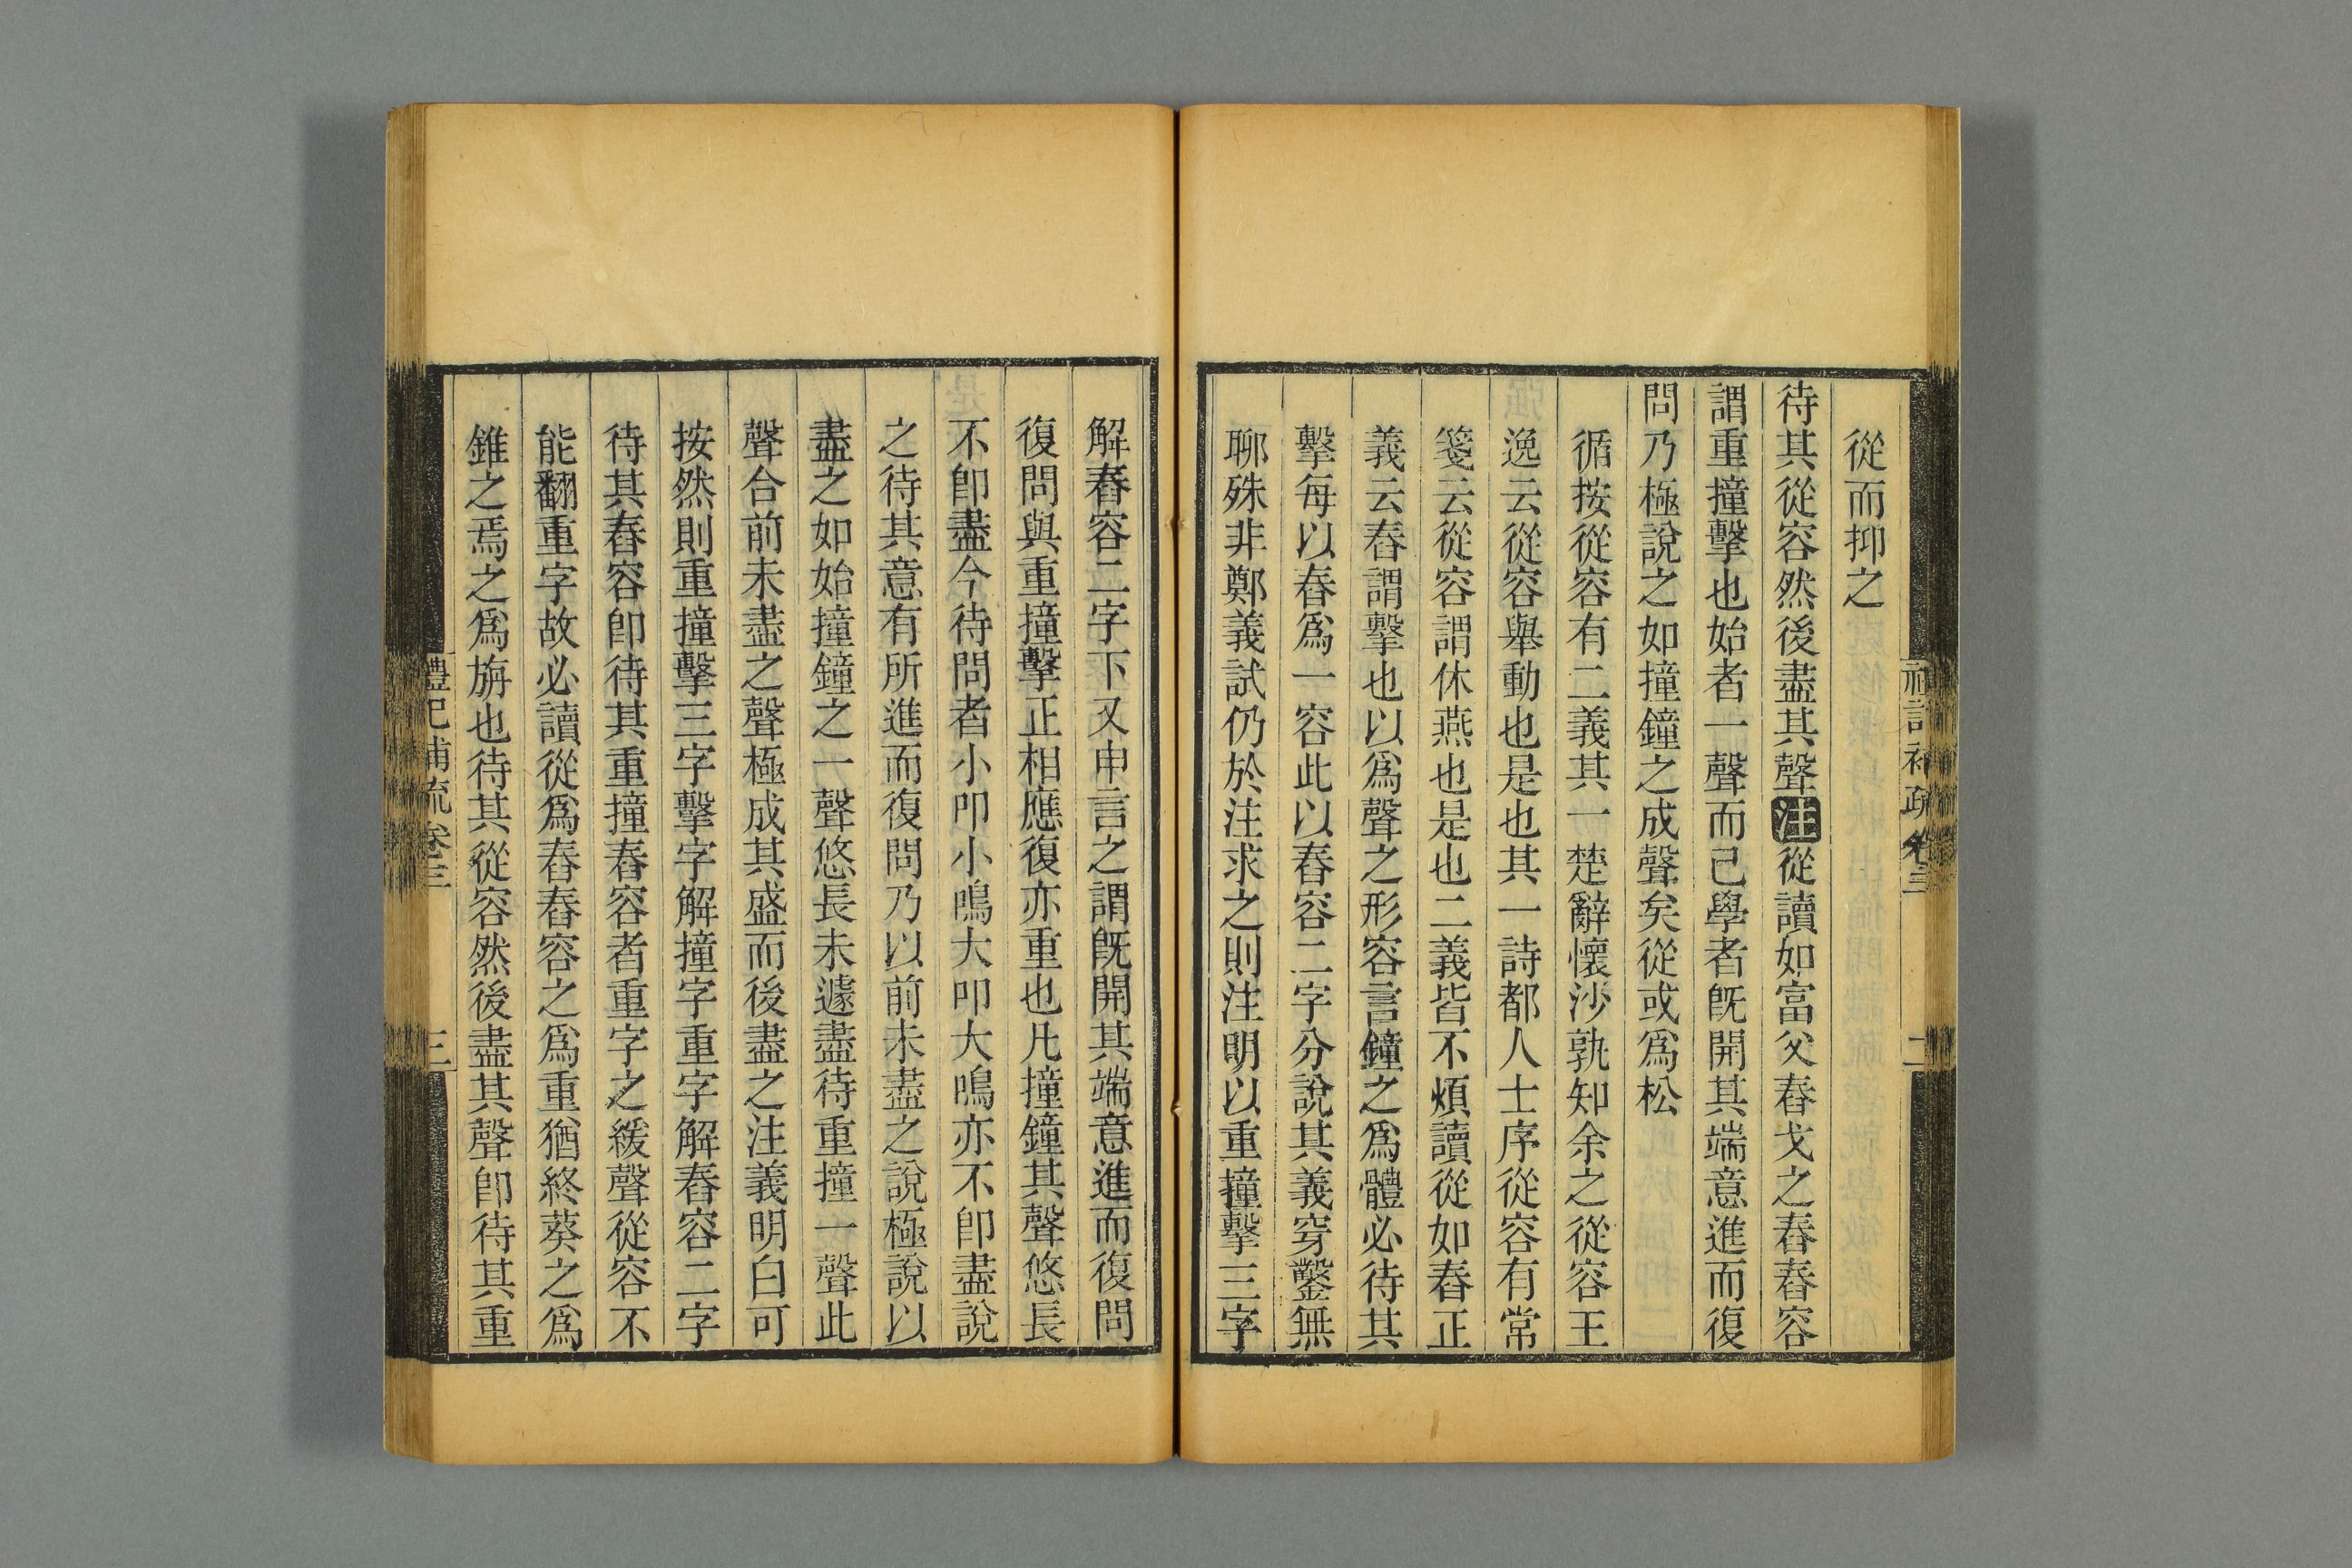 從而抑之
待其從容然後盡其聲注從讀如富父舂戈之舂舂容
謂重撞擊也始者一聲而已學者既開其端意進而復
問乃極說之如撞鐘之成聲矣從或爲松
循按從容有二義其一楚辭懷沙孰知余之從容王
逸云從容舉動也是也其一詩都人士序從容有常
箋云從容謂休燕也是也二義皆不煩讀從如舂正
義云舂謂擊也以爲聲之形容言鐘之爲體必待其
擊每以舂爲一容此以舂容二字分說其義穿鑿無
聊殊非鄭義試仍於注求之則注明以重撞擊三字
禮記補疏卷三
二
解舂容二字下又申言之謂既開其端意進而復問
復問與重撞擊正相應復亦重也凡撞鐘其聲悠長
不卽盡今待問者小叩小鳴大叩大鳴亦不卽盡說
之待其意有所進而復問乃以前未盡之說極說以
盡之如始撞鐘之一聲悠長未遽盡待重撞一聲此
聲合前未盡之聲極成其盛而後盡之注義明白可
按然則重撞擊三字擊字解撞字重字解舂容二字
待其舂容卽待其重撞舂容者重字之緩聲從容不
能翻重字故必讀從爲舂舂容之爲重猶終葵之爲
錐之焉之爲旃也待其從容然後盡其聲卽待其重
禮記補疏卷三
三